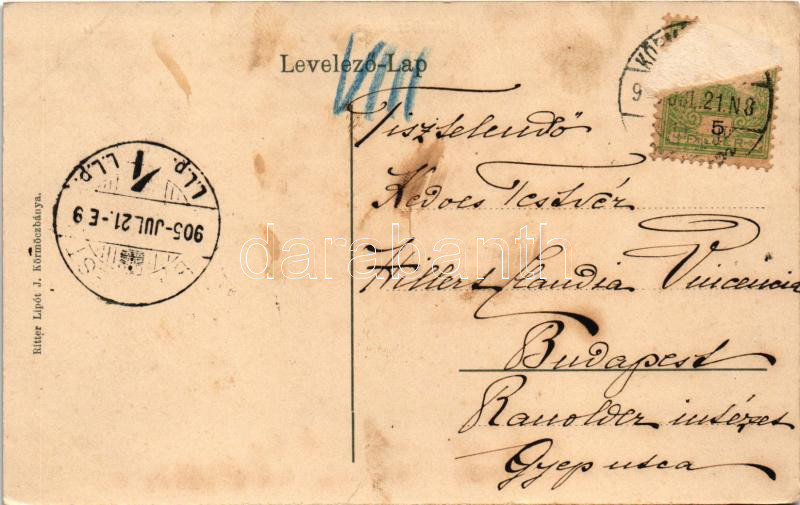 Levelező-Lap
VIII
KÖRM
9 JUL.21.N8
5
Tisztelendő
Kedves Testvér
Hillers Claudia Vincencia
Budapest
Ranolder intézet
Gyep utca
L.L.P. 1 L.L.P.
905-JUL.21.-E 9
Ritter Lipót J. Körmöczbánya.
darabanth